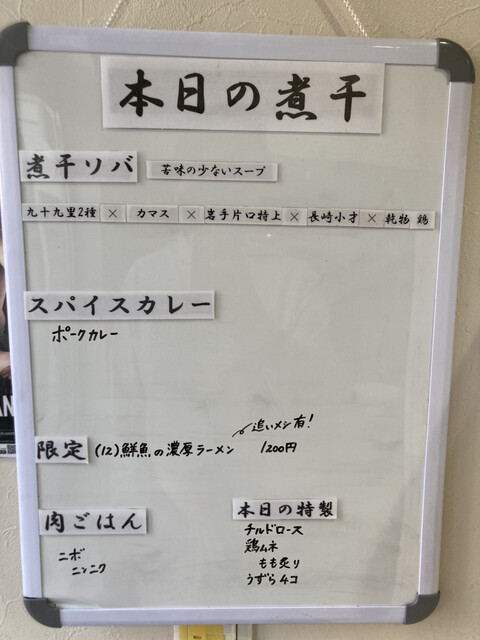 本日の煮干
煮干ソバ 苦味の少ないスープ
九十九里2種 × カマス × 岩手片口特上 × 長崎小才 × 乾物 鶏
スパイスカレー
ポークカレー
追いメシ有!
限定 (12)鮮魚の濃厚ラーメン 1200円
肉ごはん
ニボ
ニンニク
本日の特製
チルドロース
鶏ムネ
もも炙り
うずら4コ